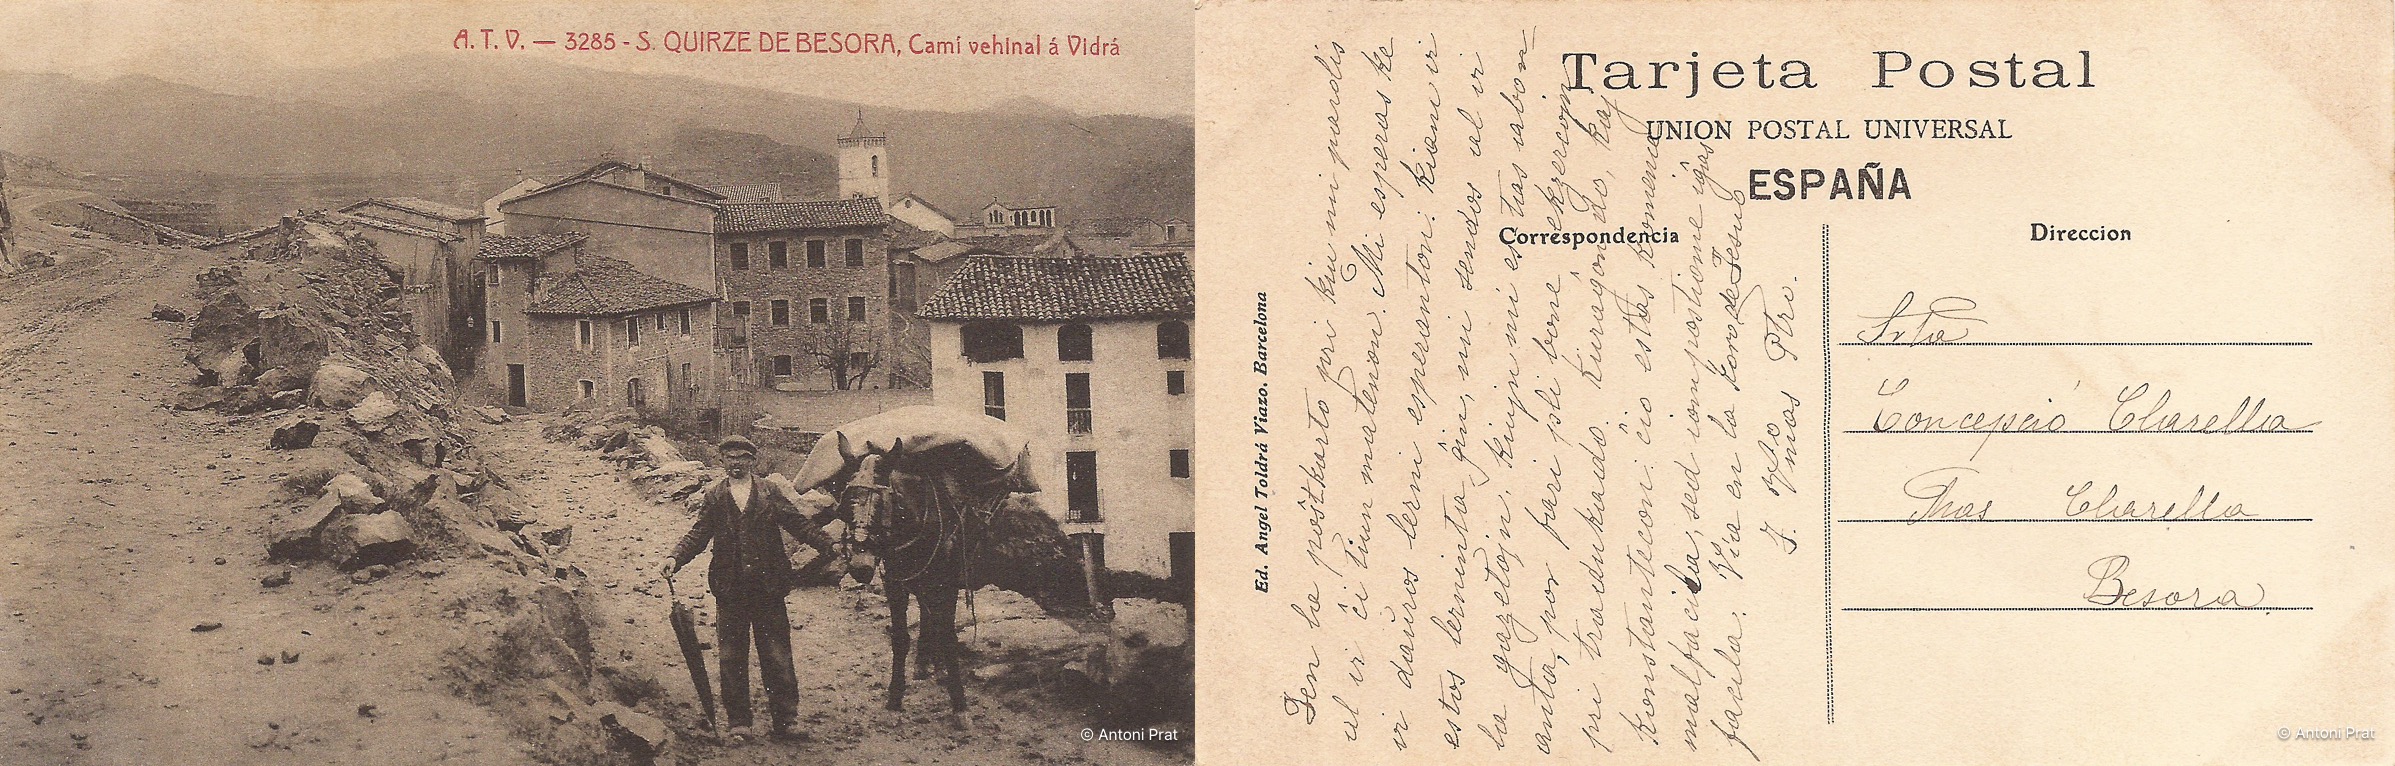 A. T. V. — 3285 - S. QUIRZE DE BESORA, Camí vehinal á Vidrá
© Antoni Prat
Ed. Angel Toldrá Viazo. Barcelona
Jen la poŝtkarto pri kiu mi parolis
al vi ĉi tiun matenon. Mi esperas ke
vi daŭros lerni esperanton. Kiam vi
estos lerninta ĝin, mi sendos al vi
la gazetojn, kiujn mi estas abon-
anta, por fari pli bone ekzercojn
pri tradukado. Kuraĝon do, kaj
konstantecon: ĉio estas
malfacila, sed iom postiome iĝas
facila. Via en la Koro de Jesuo
J.
Tarjeta Postal
UNION POSTAL UNIVERSAL
ESPAÑA
Correspondencia
Direccion
Srta
Concepció Clarella
Mas Clarella
Besora
© Antoni Prat